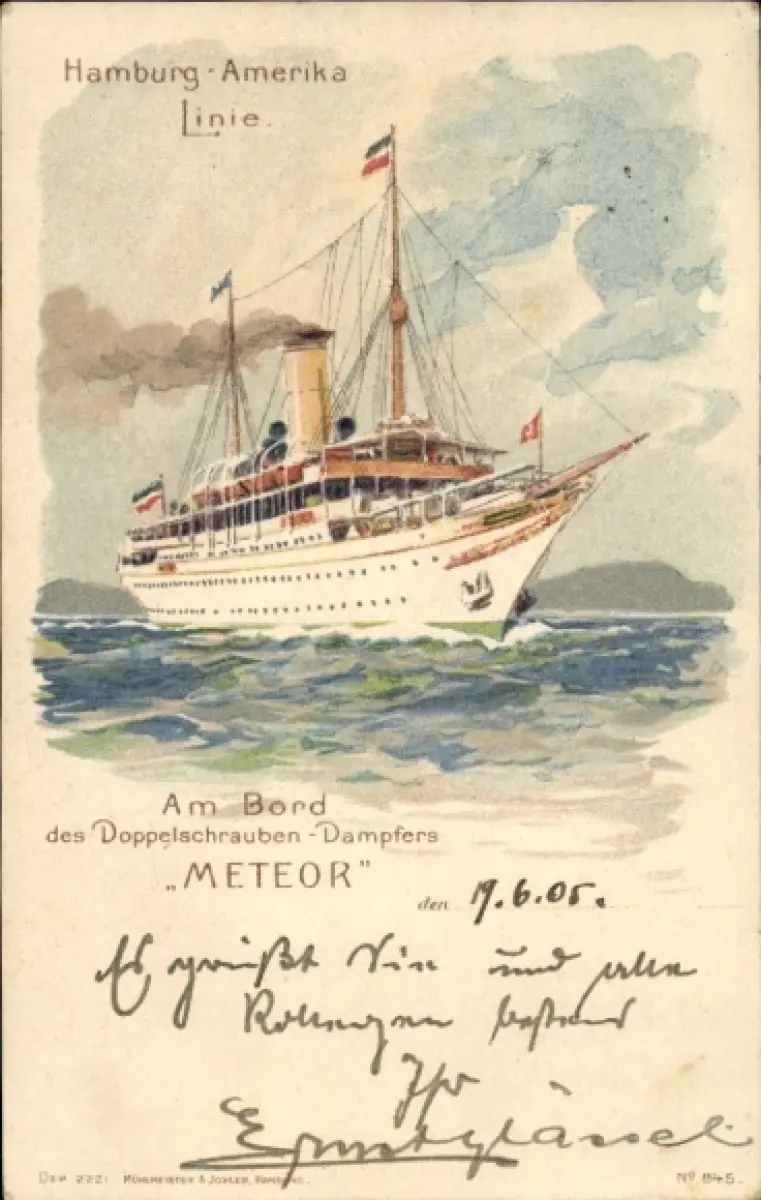 Hamburg-Amerika
Linie.
Am Bord
des Doppelschrauben-Dampfers
„METEOR”
den 19.6.05.
Es grüßt Sie und alle
Kollegen bestens
Ihr
Ernst
DEP. 222. MÜHLMEISTER & JOHLER, HAMBURG.
No 545.